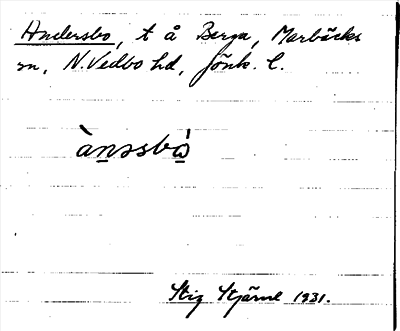 Andersbo, t å Berga, Marbäcks
sn, N. Vedbo hd, Jönk. l.
ànssbo̱̊̀
Stig Stjärne 1931.